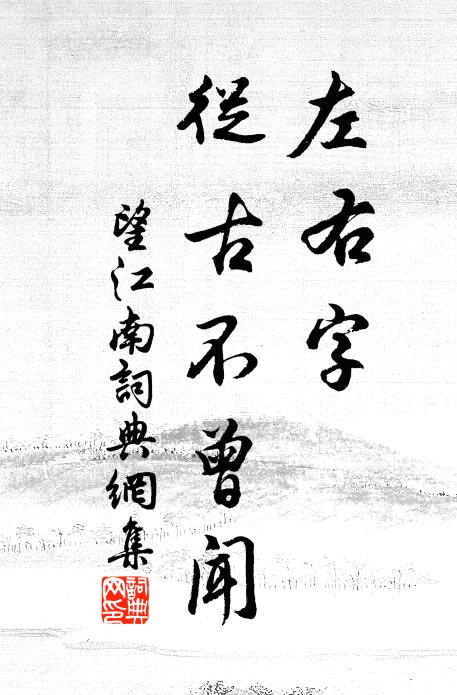 左右字
從古不曾聞
望江南詞典網集
詞典
网印